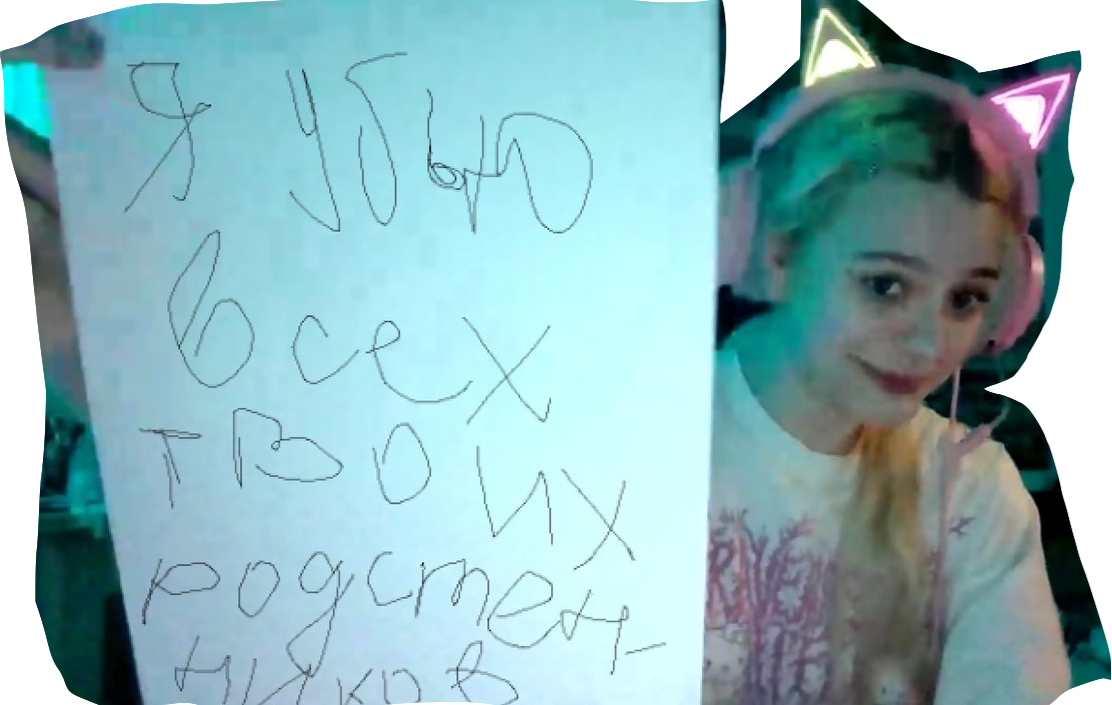 Я убью
всех
твоих
родстен-
ников